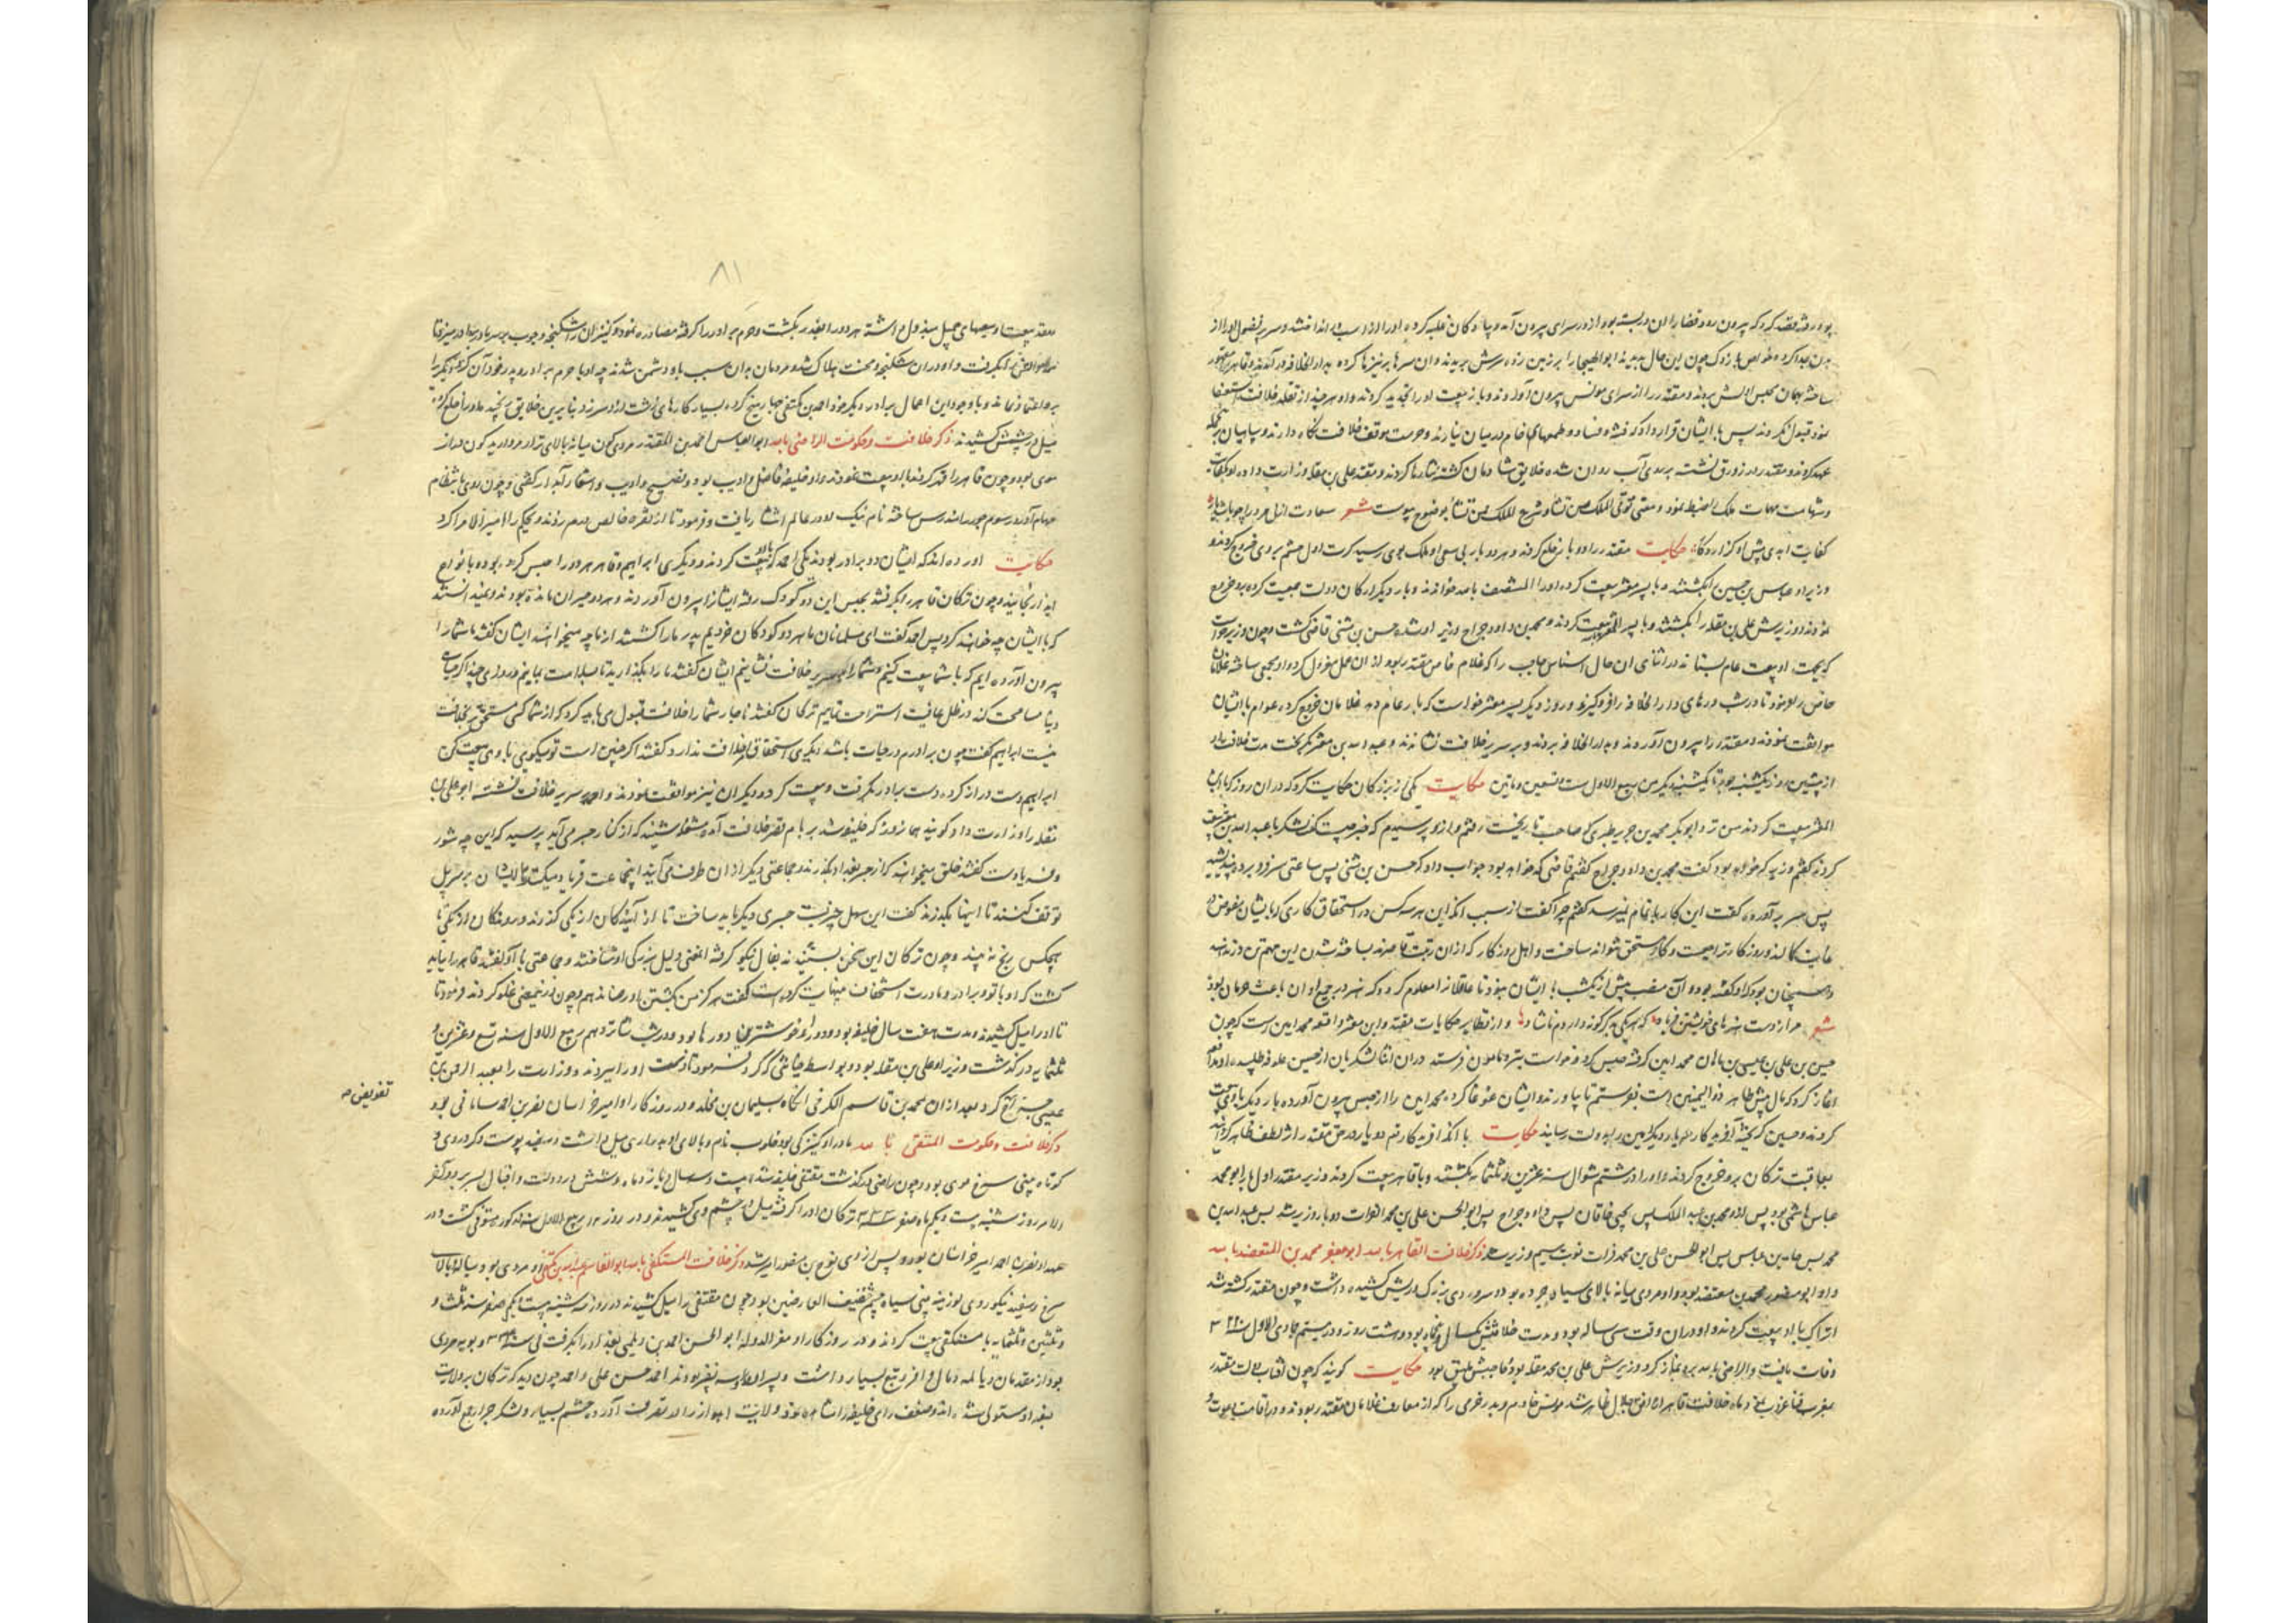 بود رفته قصد کرد که بیرون رود قضا را آن در بسته بود از در سرای بیرون آمد و پیادگان غلبه کرده او را از اسب در انداختند و سر پر فضل او را از
بدن جدا کرده چون این حال بدید نه ابوالهیجا را بر زمین زده سرش بریدند و آن سرها بر نیزها کرده بدار الخلافه در آمدند و قاهر را
ساخته بهمان محبس اولش بردند و مقتدر را از سرای مونس بیرون آوردند و باز بیعت او را تجدید کردند و او هر چند از تقلد خلافت استعفا
نمود قبول نکردند پس با ایشان قرار داد که فتنه و فساد و طمعهای خام در میان نیارند و حرمت موقف خلافت نگاه دارند و سپاهیان
عهد کردند و مقتدر در زورق نشسته بر روی آب روان شده خلایق شادمان گشته نثارها کردند و مقتدر علی بن مقله را وزارت داده
و شهامت مهمات ملک را ضبط نمود و معنی تؤتی الملک من تشاء و تنزع الملک ممن تشاء بوضوح پیوست شعر سعادت ازلی
کفایت ابدی پیش او گزارد کلاه حکایت مقتدر را دو بار خلع کردند و هر دو بار بی سعی او ملک بوی رسید کرت اول حشم بر وی خروج کردند و
وزیر او عباس بن حسین را بکشتند و با پسر معتز بیعت کرده او را المنتصف بالله خواندند و بار دیگر ارکان دولت جمعیت کرده بر وی خروج
نمودند و وزیرش علی بن مقله را بکشتند و با پسر المعتز بیعت کردند و محمد بن داود جراح وزیر او شد و حسن بن مثنی قاضی گشت و چون وزیر خواست
که بجهت او بیعت عام بستاند در اثنای آن حال سناس حاجب را که غلام خاص مقتدر بود از آن عمل معزول کرد و او یحیی ساخته غلامان
خاص را فرمود تا در شب درهای دار الخلافه را فرو گیرند و روز دیگر پسر معتز خواست که بار عام دهد غلامان خروج کرده عوام با ایشان
موافقت نمودند و مقتدر را بیرون آوردند و بدار الخلافه بردند و بر سریر خلافت نشاندند و عبدالله بن معتز بگریخت مدت خلافت او
از پیشین روز یکشنبه بود تا یکشنبه دیگر من ربیع الاول ست و تسعین و مأتین حکایت یکی از بزرگان حکایت کرد که در آن روز که با
المعتز بیعت کردند من نزد ابوبکر محمد بن جریر طبری که صاحب تاریخست رفتم و از وی پرسیدم که خبر چیست گفت لشکر با عبدالله بن معتز بیعت
کردند گفتم وزیر که خواهد بود گفت محمد بن داود جراح گفتم قاضی که خواهد بود جواب داد که حسن بن مثنی پس ساعتی سر فرو برده
پس سر برآورده گفت این کار باتمام نمیرسد گفتم چرا گفت از سبب آنکه این هر سه کس در استحقاق کاری که بایشان مفوض
غایت کمال اند و روزگار
و همچنان بود که او گفته بود و آن منصب پیش از یکشب با ایشان نبود تا عاقلان را معلوم گردد که هنر در هیچ اوان باعث حرمان بود
شعر مرا از دست هنرهای خویشتن فریاد که هر یکی بدگر گونه داردم ناشاد و از نظایر حکایات مقتدر و ابن معتز واقعه محمد امین است که چون
حسین بن علی بن عیسی بن ماهان محمد امین را گرفته حبس کرد و خواست بنزد مأمون فرستد در آن اثنا لشکریان از حسین علوفه طلبیدند
آغاز کرد که مال پیش طاهر ذوالیمینین است بفرستم تا بیاورند و ایشان غوغا کرده محمد امین را از حبس بیرون آورده بار دیگر با وی بیعت
کردند و حسین گریخت آفریدگار بار دیگر امین را بدولت رسانید حکایت با آنکه آفریدگار دو بار در حق مقتدر اثر لطف ظاهر
بعاقبت ترکان برو خروج کردند و او را در ششم شوال سنه عشرین و ثلثمائه بکشتند و با قاهر بیعت کردند وزیر مقتدر اول بار ابو محمد
عباس هاشمی بود پس محمد بن عبدالملک پس یحیی خاقان پس داود جراح پس ابوالحسن علی بن محمد الفرات دو بار وزیر شد پس عبدالله بن
محمد پس حامد بن عباس پس ابوالحسن علی بن محمد فرات نوبت سیم وزیر شد ذکر خلافت القاهر بالله ابو جعفر محمد بن المعتضد بالله
و او ابو منصور محمد بن معتضد بود و او مردی میانه بالای سیاه چرده بود و سر و روی بزرگ و ریش کشیده داشت و چون مقتدر کشته شد
اتراک با او بیعت کردند و او در آن وقت سی ساله بود و مدت خلافتش یکسال و پنج ماه بود و هشت روز و در بیستم جمادی الاول سنه ۳۲۰
وفات یافت و الراضی بالله برو نماز کرد و وزیرش علی بن محمد مقله بود و حاجبش بلیق بود حکایت گویند که چون آفتاب دولت مقتدر
بمغرب فنا غروب کرد و ماه خلافت قاهر از افق جلال ظاهر شد مونس خادم و پدر خرمی را که از معارف غلامان مقتدر بودند و در اقامت
۸۱
عقد بیعت او سعیهای جمیل مبذول داشته هر دو را بغدر بکشت و حرم برادر را گرفته مصادره نمود و کنیزان را شکنجه
و او در آن شکنجه و محنت هلاک شد و مردمان بدان سبب با او دشمن شدند چه او با حرم برادر و پدر خود آن کرد
برو اعتماد نماند و با وجود این احمال برادر دیگر خود احمد بن مکتفی حبا ر میخ کرده بسیار کارهای زشت از او سر زد بنا برین خلایق برنجیدند و او را خلع کرده
میل در چشمش کشیدند ذکر خلافت و حکومت الراضی بالله ابوالعباس احمد بن المقتدر مردی میانه بالای نزار و گندم گون دراز
موی بود و چون قاهر را قید کردند با او بیعت نمودند و او خلیفه فاضل و ادیب بود و فصیح و ادیب و اشعار آبدار گفتی و چون روی بانتظام
مهام آورد رسوم جور را مندرس ساخته نام نیک او در عالم انتشار یافت و فرمود تا از نقره خالص درم زدند و بجکم را امیر الامرا کرد
حکایت آورده اند که ایشان دو برادر بودند یکی احمد که با او بیعت کردند و دیگری ابراهیم و قاهر هر دو را حبس کرده بود و بانواع
ایذا رنجانیده و چون ترکان قاهر را بگرفتند بمحبس این دو کودک رفته ایشان را بیرون آوردند و هر دو حیران مانده بودند و نمیدانستند
که با ایشان چه خواهند کرد پس احمد گفت ای مسلمانان ما هر دو کودکان خردیم پدر ما را کشتند از ما چه میخواهید ایشان گفتند ما شما را
بیرون آورده ایم که با شما بیعت کنیم و شما را بر سریر خلافت نشانیم ایشان گفتند ما را بگذارید تا بسلامت بمانیم و روزی چند اگر حیات
دنیا مسامحت کند در ظل عافیت استراحت نمایم ترکان گفتند ناچار شما را خلافت قبول می باید کرد که از شما کسی مستحق تر بخلافت
نیست ابراهیم گفت چون برادرم در حیات باشد دیگری استحقاق خلافت ندارد گفتند اگر چنین است تو میگویی با وی بیعت کن
ابراهیم دست دراز کرده دست برادر بگرفت و بیعت کرد و دیگران نیز موافقت نمودند و احمد بر سریر خلافت نشسته ابو علی بن
مقله را وزارت داد و گویند همان روز که خلیفه شد بر بام قصر خلافت آمده مشغله شنید که از کنار جسر می آید پرسید که این چه شور
و فریاد است گفتند خلق میخواهند که از جسر بغداد بگذرند و جماعتی دیگر از آن طرف می آیند اینجماعت فریاد میکنند تا ایشان بر سر پل
توقف کنند تا اینها بگذرند گفت این سهل چیزیست جسری دیگر باید ساخت تا از آیندگان از یکی گذرند و روندگان از دیگر تا
هیچکس رنج نبیند و چون ترکان این سخن بشنیدند بفال نیکو گرفته این معنی دلیل بزرگی او شناختند و جماعتی با او گفتند قاهر را بباید
کشت که او با تو و برادر و مادرت استخفاف بنهایت کرده است گفت هرگز من بکشتن او رضا ندهم و چون در اینمعنی غلو کردند فرمود تا
تا او را میل کشیدند و مدت هفت سال خلیفه بود و دور او خوشترین دورها بود و در شب شانزدهم ربیع الاول سنه تسع و عشرین و
ثلثمایه درگذشت وزیر او علی بن مقله بود و بواسطه خیانتی که کرد فرمود تا دست او را ببریدند و وزارت را بعبد الرحمن بن
عیسی جراح کرد و بعد از آن محمد بن قاسم الکرخی انگاه سلیمان بن مخلد و در روزگار او امیر خراسان نصر بن احمد سامانی بود
تفویض صح
ذکر خلافت و حکومت المتقی بالله مادر او کنیزکی بود خلوب نام و بالای او بدرازی میل داشت و سفید پوست و گرد روی و
کوتاه بینی سرخ موی بود و چون راضی درگذشت متقی خلیفه شد بیست و سه سال و یازده ماه و شش در دولت و اقبال بسر برد و آخر
الامر روز شنبه بیست و یکم ماه صفر سنه ۳۳۳ ترکان او را گرفته میل در چشم وی کشیدند و در روز ربیع الاول سنه مذکور متوفی گشت و در
عهد او نصر بن احمد امیر خراسان بود و پس از وی نوح بن منصور امیر شد ذکر خلافت المستکفی بالله ابوالقاسم عبدالله بن مکتفی او مردی بود میانه بالا
سرخ و سفید نیکو روی لوزینه بینی سیاه چشم خفیف العارضین بود چون متقی را میل کشیدند در روز شنبه بیست یکم صفر سنه ثلث و
و ثلثین و ثلثمایه با مستکفی بیعت کردند و در روزگار او معز الدوله ابو الحسن احمد بن دیلمی بغداد را بگرفت فی سنه ۳۳۴ و بویه مردی
بود از مقدمان دیالمه و مال وافر و تبع بسیار داشت و پسر او را سه نفر بودند احمد حسن علی و احمد چون دید که ترکان بر ولایت
بغداد مستولی شده اند و ضعف رای خلیفه را مشاهده نمود ولایت اهواز را در تصرف آورده حشم بسیار و لشکر جرار جمع آورده